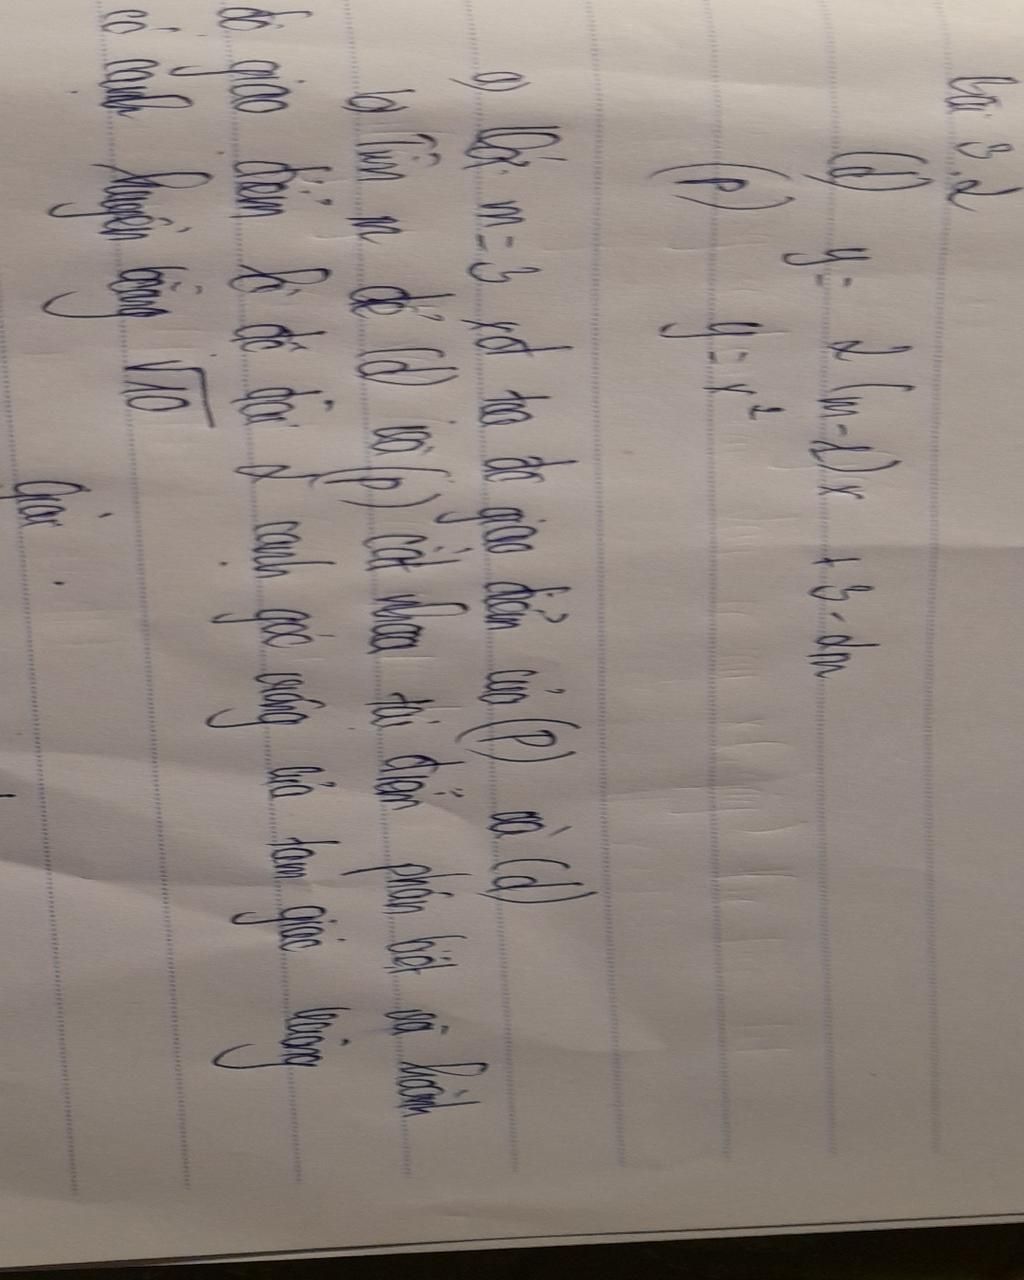 bài 3.2
(d) y = 2(m-1)x + 3-2m
(P) y = x²
a) Với m=3 xđ toạ độ giao điểm của (P) và (d)
b) Tìm m để (d) và (P) cắt nhau tại điểm phân biệt và hoành
độ giao điểm là độ dài 2 cạnh góc vuông của tam giác vuông
có cạnh huyền bằng √10
Giải